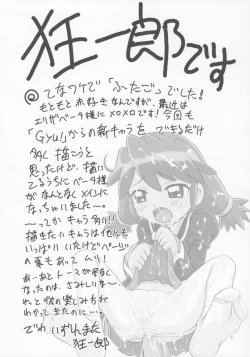 狂一郎です
@てなワケで「ふたご」でした!
もともと赤好きなんですが、最近は
エリザベータ様にメロメロです!今回も
「Gyu!」からの新キャラを できるだけ
多く描こうと
思ったけど、描い
てるうちにベータ様
がなんとなくメインに
なっちゃいました…。
〜ってかキャラ多い!!
描きたいキャラは他にも
いっぱい いたけどページ
の菓もあって ムリ!
なったのは、さみしいな〜
わかってきたのに…。
でわ いずれまた
狂一郎